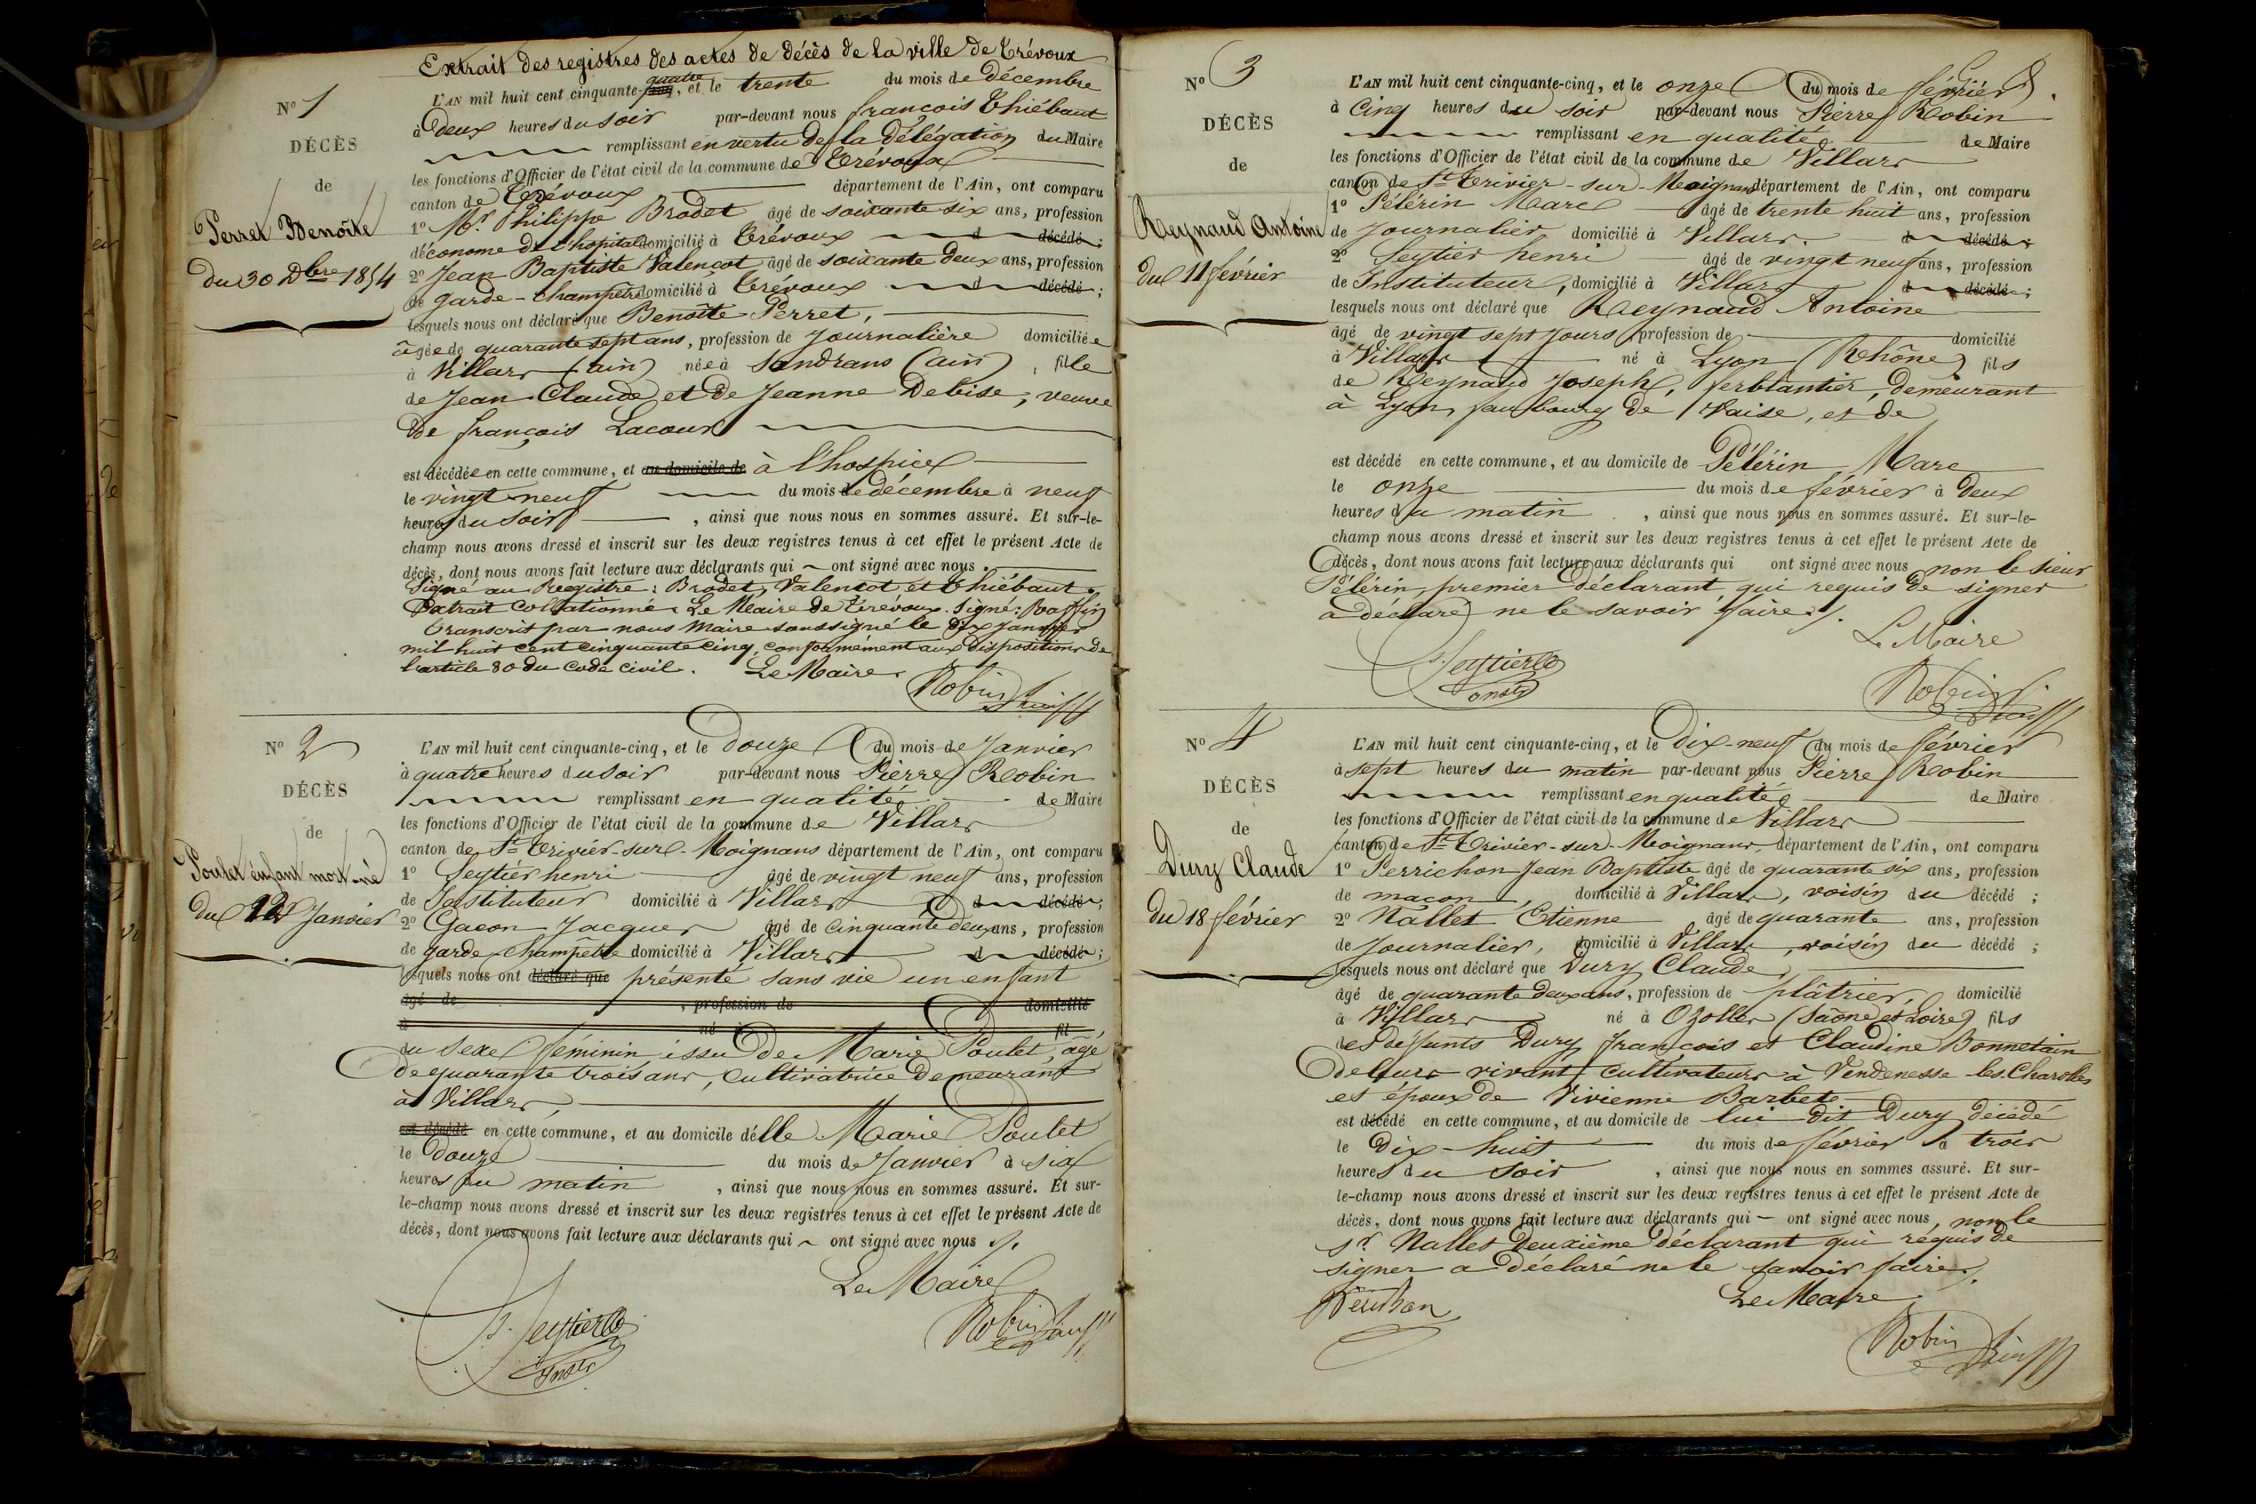 Extrait des registres des actes de décès de la ville de Trévoux
N° 1
DÉCÈS
de
Perret Benoîte
du 30 Dbre 1854
L'AN mil huit cent cinquante-quatre, et le trente du mois de décembre
à deux heures du soir par-devant nous françois Thiébaut
remplissant en vertu de la délégation du Maire
les fonctions d'Officier de l'état civil de la commune de Trévoux
canton de Trévoux département de l'Ain, ont comparu
1° Mr. Philippe Brodet âgé de soixante six ans, profession
d'économe de l'hopital domicilié à Trévoux d décédé ;
2° Jean Baptiste Valençot âgé de soixante deux ans, profession
de garde-champêtre domicilié à Trévoux d décédé ;
lesquels nous ont déclaré que Benoîte Perret,
âgée de quarante sept ans, profession de Journalière domiciliée
à Villars (ain) née à Sandrans (ain), fille
de Jean Claude et de Jeanne Debise, veuve
de françois Lacour
est décédée en cette commune, et au domicile de à l'hospice
le vingt neuf du mois de décembre à neuf
heures du soir, ainsi que nous nous en sommes assuré. Et sur-le-
champ nous avons dressé et inscrit sur les deux registres tenus à cet effet le présent Acte de
décès, dont nous avons fait lecture aux déclarants qui ont signé avec nous.
Signé au Registre : Brodet, Valencot et Thiébaut.
Extrait Collationné. Le Maire de Trévoux. Signé : Raffin
Transcrit par nous Maire soussigné le dix janvier
mil huit cent cinquante cinq, conformément aux dispositions de
l'article 80 du code civil. Le Maire
Robin
N° 2
DÉCÈS
de
Poulet enfant mort-né
du 12 Janvier
L'AN mil huit cent cinquante-cinq, et le douze du mois de Janvier
à quatre heures du soir par-devant nous Pierre Robin
remplissant en qualité de Maire
les fonctions d'Officier de l'état civil de la commune de Villars
canton de St Trivier-sur-Moignans département de l'Ain, ont comparu
1° Seytier henri âgé de vingt neuf ans, profession
de Instituteur domicilié à Villars d décédé ;
2° Gacon Jacques âgé de cinquante deux ans, profession
de garde champêtre domicilié à Villars d décédé ;
lesquels nous ont déclaré que présenté sans vie un enfant
âgé de , profession de domicilié
à né à fil
du sexe féminin issu de Marie Poulet, âgé
de quarante trois ans, cultivatrice demeurant
à Villars,
est décédé en cette commune, et au domicile délle Marie Poulet
le douze du mois de Janvier à six
heures du matin, ainsi que nous nous en sommes assuré. Et sur-
le-champ nous avons dressé et inscrit sur les deux registres tenus à cet effet le présent Acte de
décès, dont nous avons fait lecture aux déclarants qui ont signé avec nous
Le Maire
h. Seytier
Instr
Robin
N° 3
DÉCÈS
de
Reynaud Antoine
du 11 février
L'AN mil huit cent cinquante-cinq, et le onze du mois de février
à cinq heures du soir par-devant nous Pierre Robin
remplissant en qualité de Maire
les fonctions d'Officier de l'état civil de la commune de Villars
canton de St Trivier-sur-Moignans département de l'Ain, ont comparu
1° Pélérin Marc âgé de trente huit ans, profession
de Journalier domicilié à Villars. d décédé ;
2° Seytier henri âgé de vingt neuf ans, profession
de Instituteur, domicilié à Villars d décédé ;
lesquels nous ont déclaré que Reynaud Antoine
âgé de vingt sept jours, profession de domicilié
à Villars né à Lyon (Rhône) fils
de Reynaud Joseph, ferblantier, demeurant
à Lyon, faubourg de Vaise, et de
est décédé en cette commune, et au domicile de Pélérin Marc
le onze du mois de février à deux
heures du matin, ainsi que nous nous en sommes assuré. Et sur-le-
champ nous avons dressé et inscrit sur les deux registres tenus à cet effet le présent Acte de
décès, dont nous avons fait lecture aux déclarants qui ont signé avec nous non le sieur
Pélérin, premier déclarant qui requis de signer
a déclaré ne le savoir faire.
Le Maire
h. Seytier
Instr
Robin
N° 4
DÉCÈS
de
Dury Claude
du 18 février
L'AN mil huit cent cinquante-cinq, et le dix-neuf du mois de février
à sept heures du matin par-devant nous Pierre Robin
remplissant en qualité de Maire
les fonctions d'Officier de l'état civil de la commune de Villars
canton de St Trivier-sur-Moignans, département de l'Ain, ont comparu
1° Perrichon Jean Baptiste âgé de quarante six ans, profession
de maçon, domicilié à Villars, voisin du décédé ;
2° Nallet Etienne âgé de quarante ans, profession
de Journalier, domicilié à Villars, voisin du décédé ;
lesquels nous ont déclaré que Dury Claude,
âgé de quarante deux ans, profession de plâtrier, domicilié
à Villars né à Ozolles (Saône et Loire) fils
des deffunts Dury françois et Claudine Bonnetain
de leurs vivant cultivateurs à Vendenesse-les-Charolles
et époux de Vivienne Barbet
est décédé en cette commune, et au domicile de lui dit Dury décédé
le dix-huit du mois de février à trois
heures du soir, ainsi que nous nous en sommes assuré. Et sur-
le-champ nous avons dressé et inscrit sur les deux registres tenus à cet effet le présent Acte de
décès, dont nous avons fait lecture aux déclarants qui ont signé avec nous, non le
Sr. Nallet deuxième déclarant qui réquis de
signer a déclaré ne le savoir faire.
Le Maire
Périchon
Robin